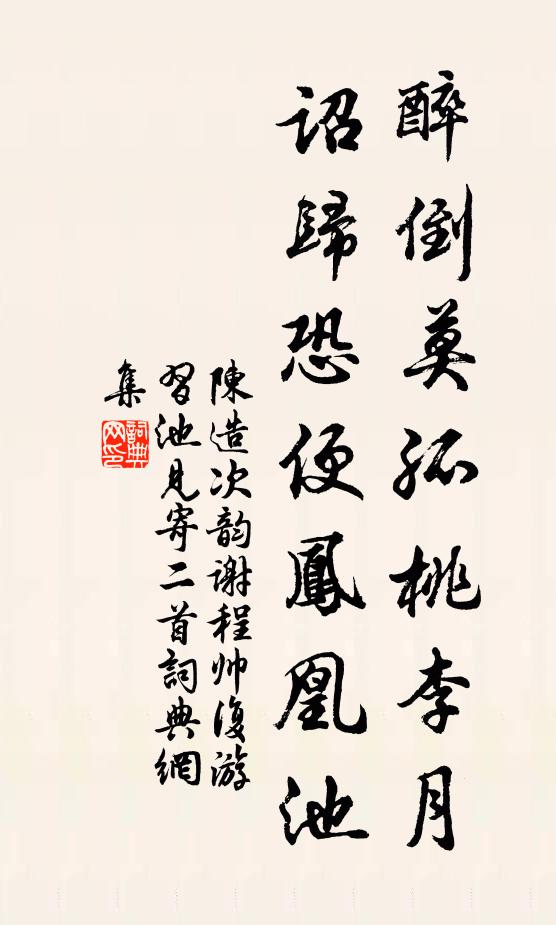 醉倒莫孤桃李月
詔歸恐便鳳凰池
陳造次韵谢程帅復游
習池見寄二首詞典網
集
詞典
网印